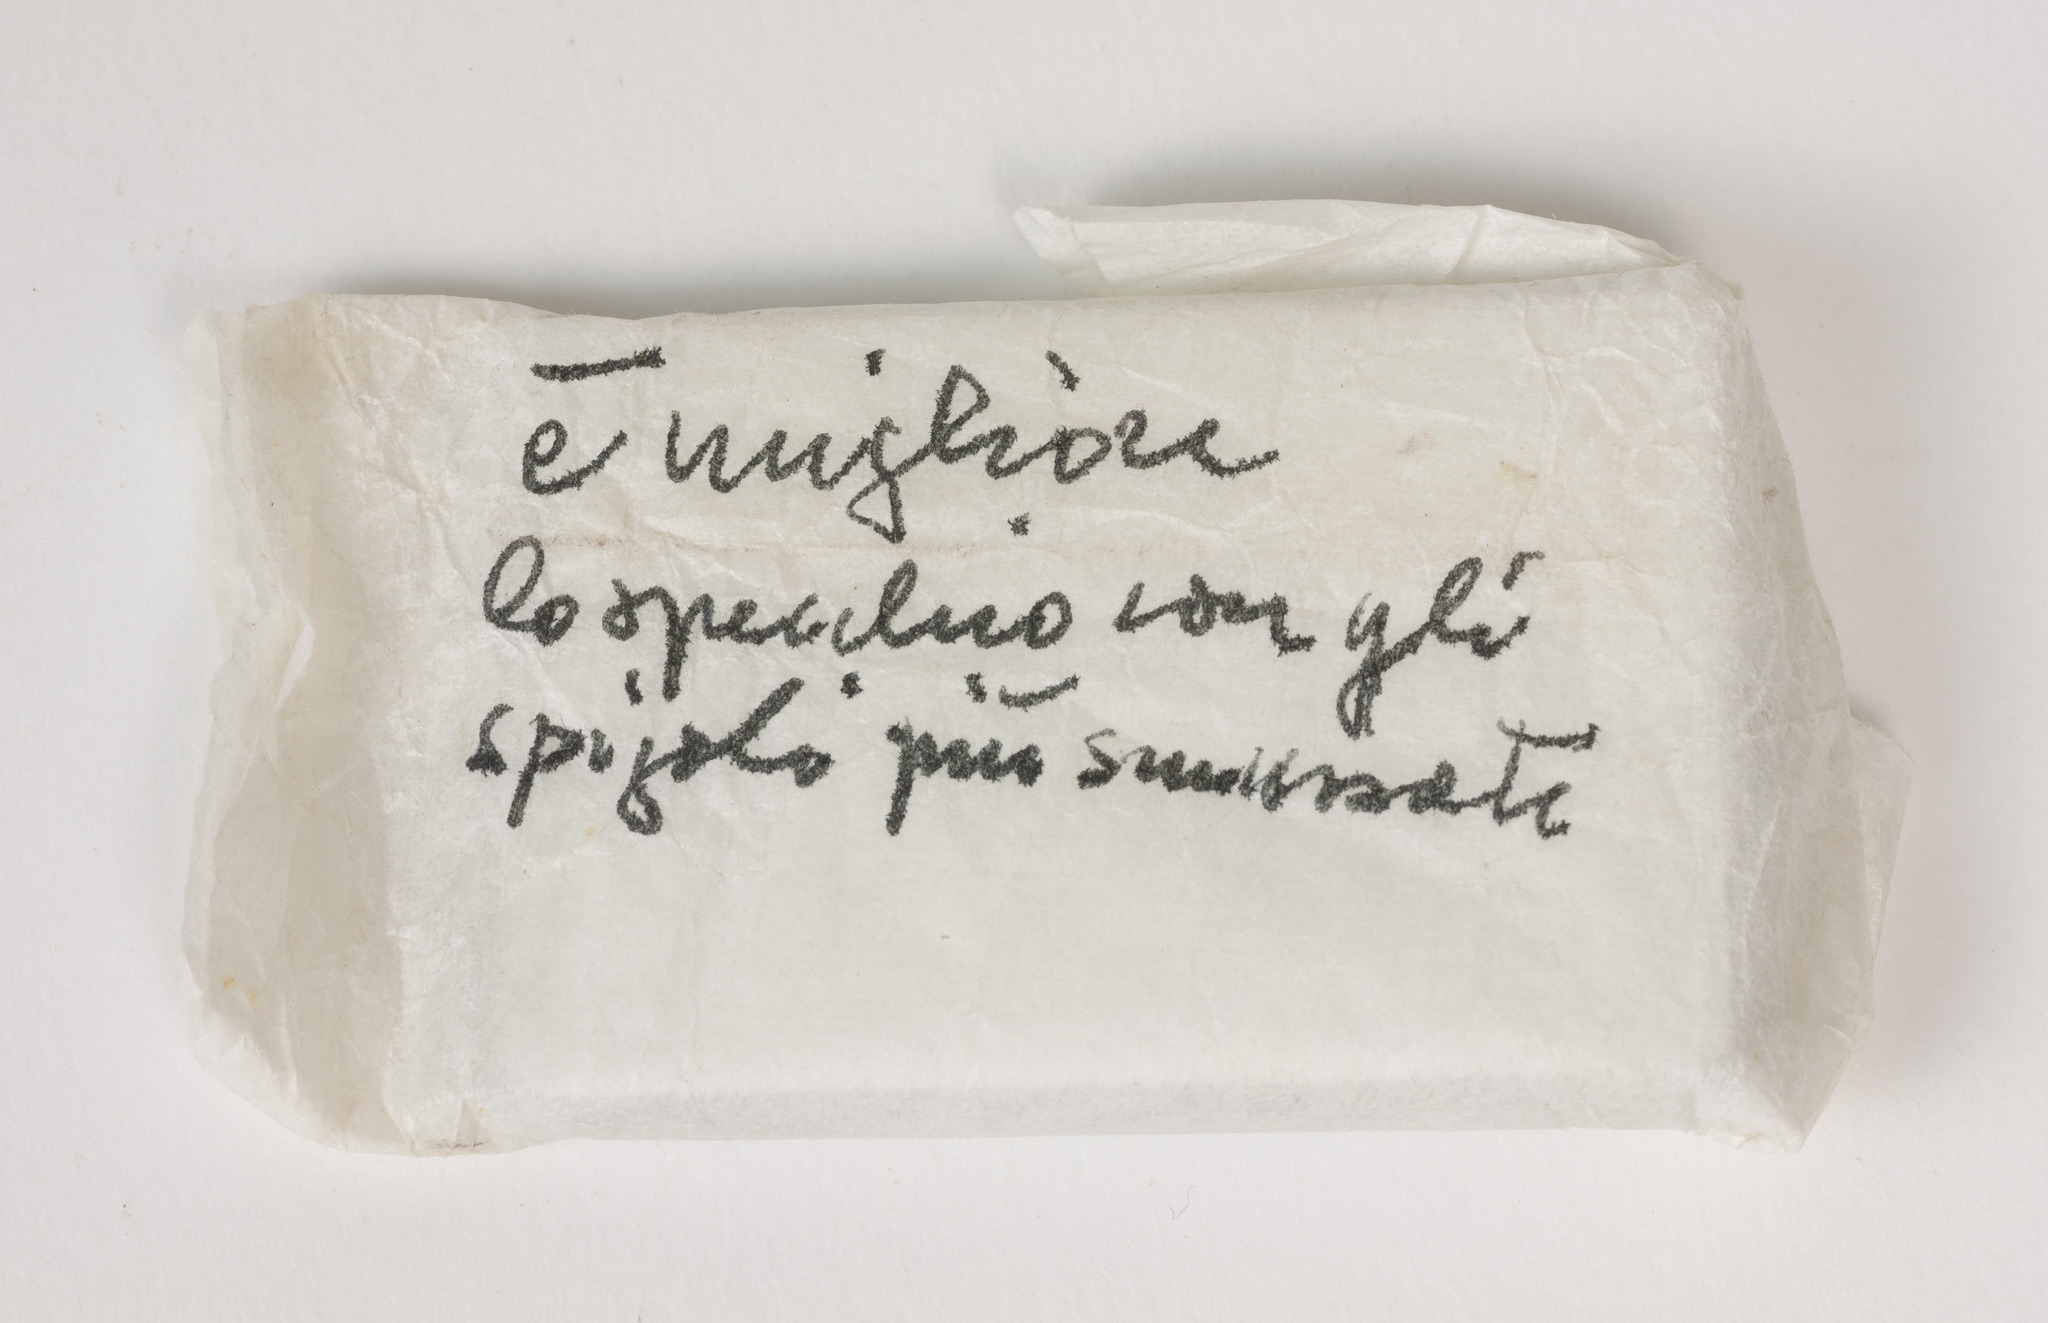 è migliore
lo specchio con gli
spigoli più smussate